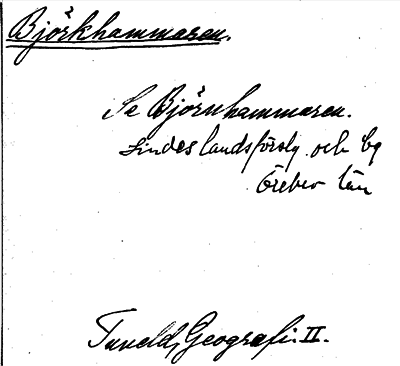 Björkhammaren.
Se Björnhammaren.
Lindes landsförsg och bg
Örebro län
Tuneld, Geografi. II.